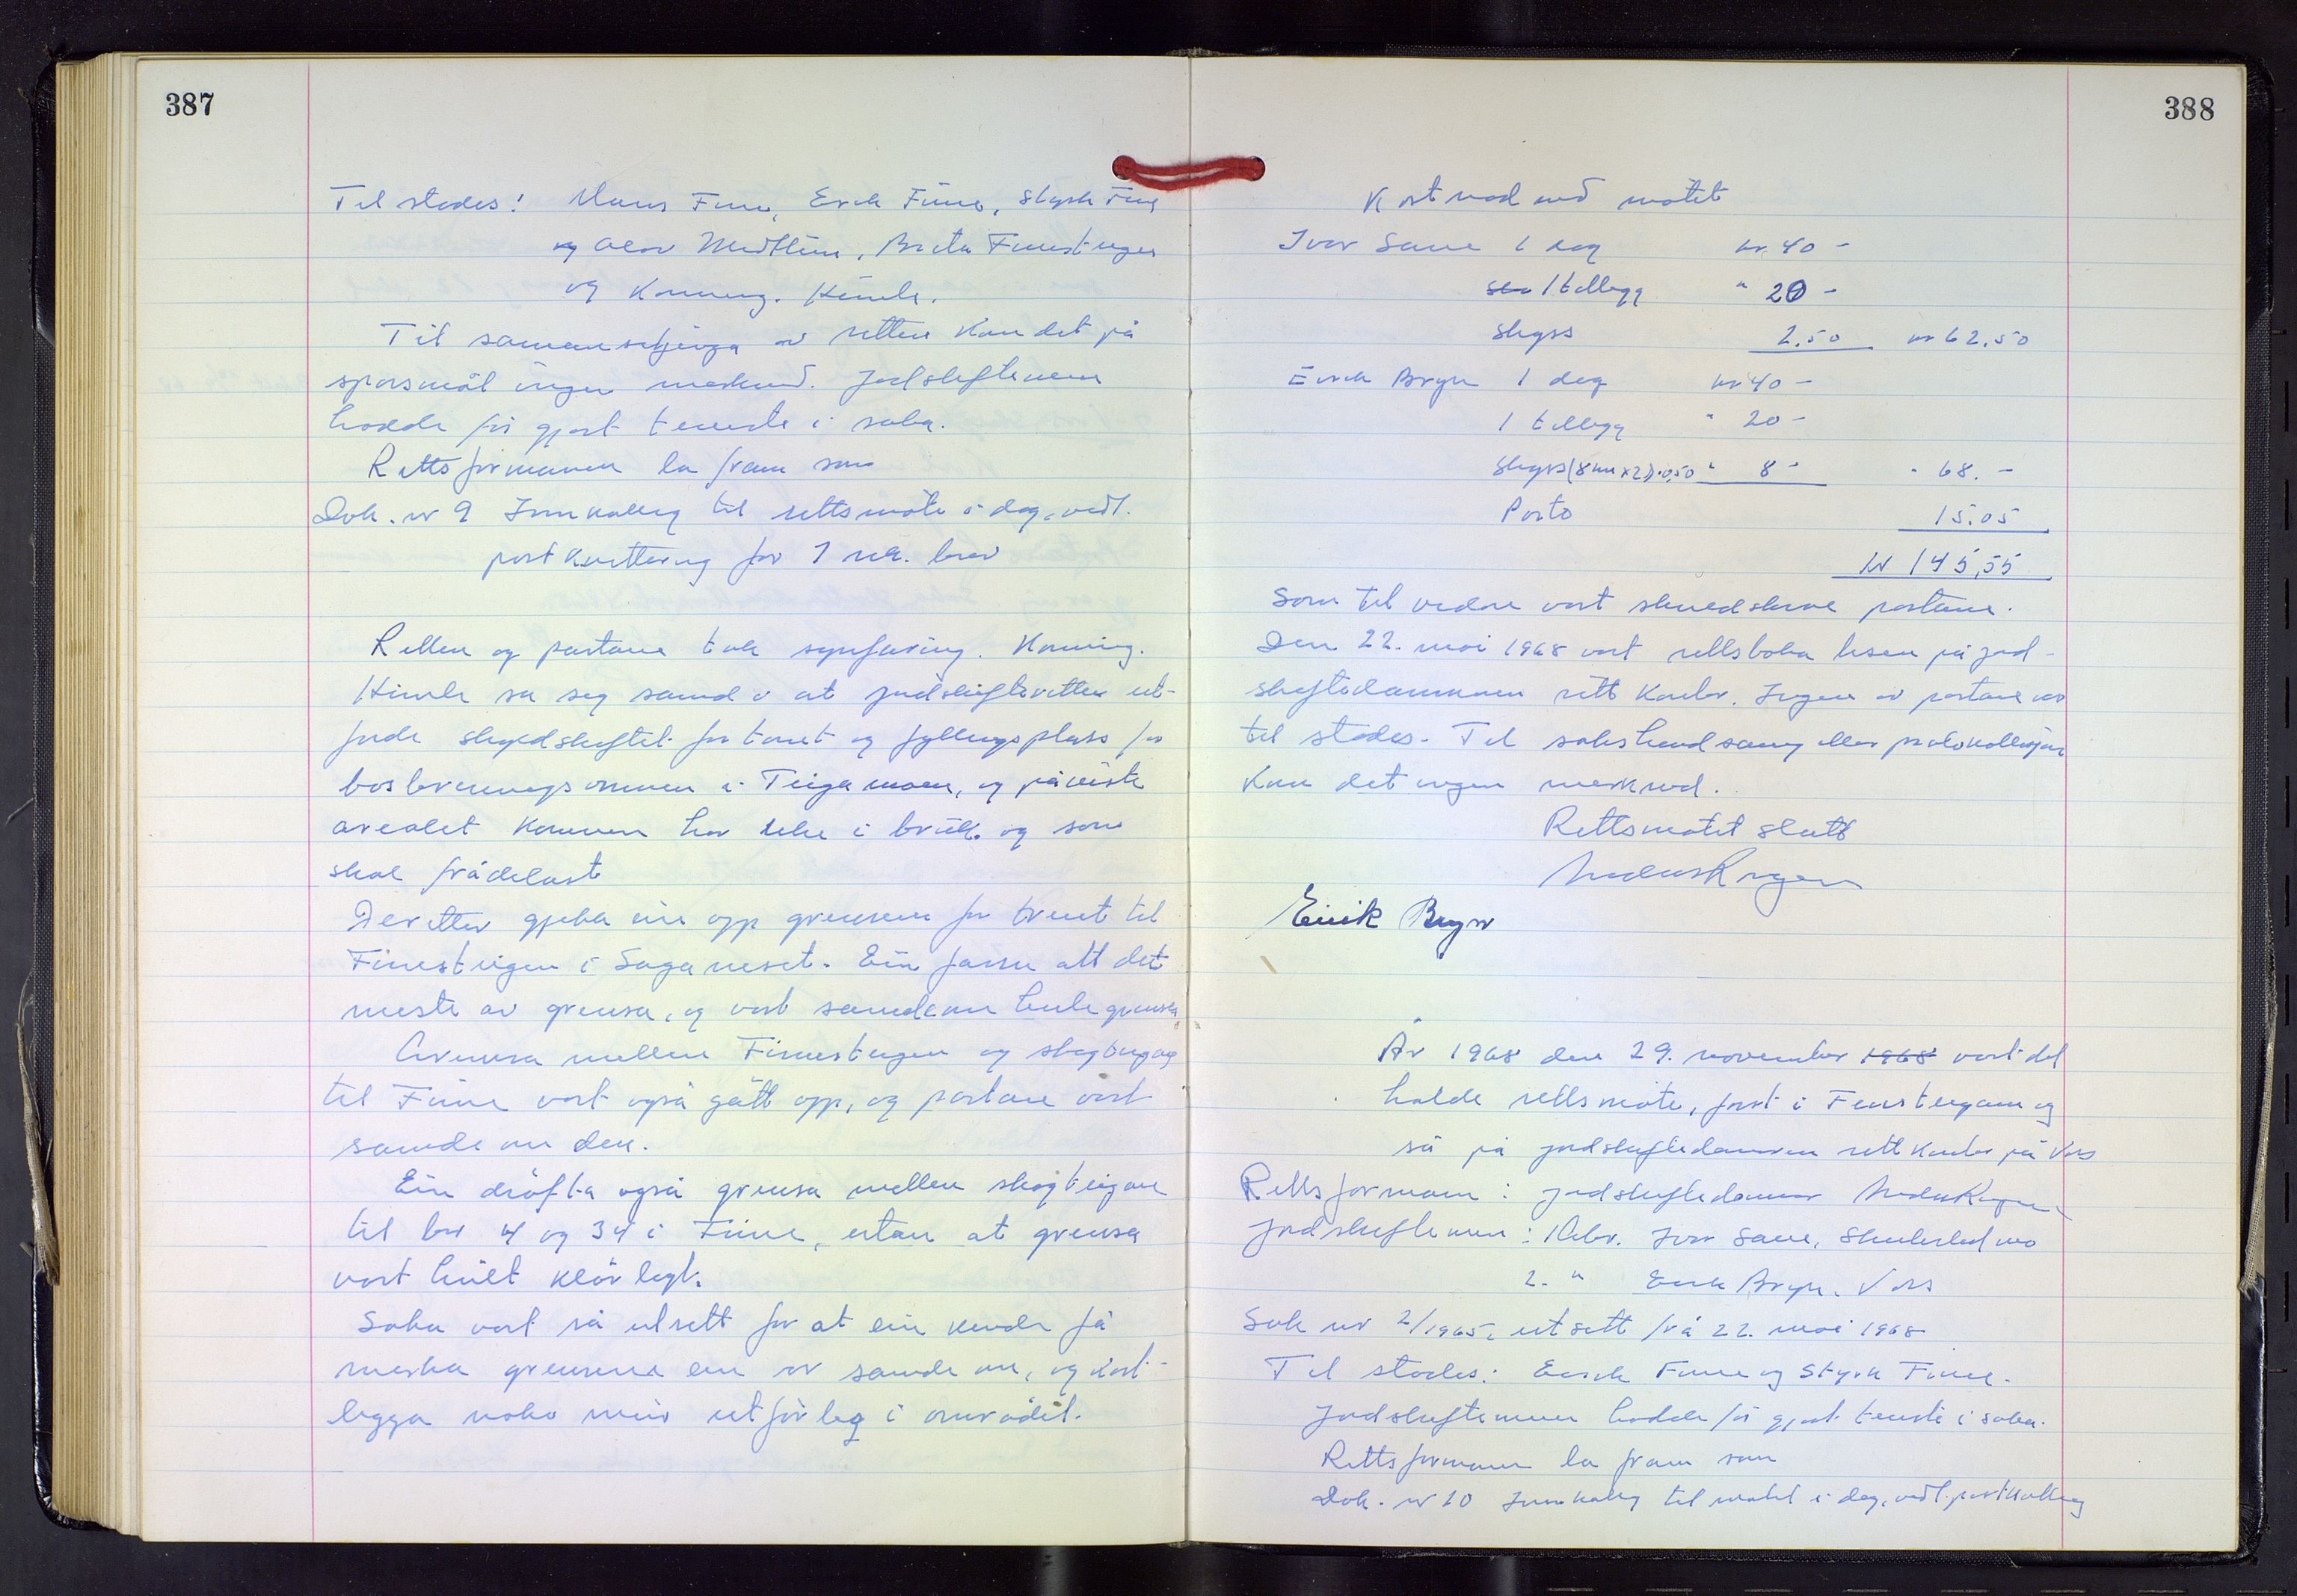 387
Til stades: Mons Finne, Eirik Finne, Styrk Finne
og Olav Midttun, Brita Finnesteigen
og Kommuneing. Himle.
Til samansetjinga av retten kom det på
spørsmål ingen merknad. Jordskiftemenn
hadde før gjort teneste i saka.
Rettsformannen la fram som
Dok. nr 9 Innkalling til rettsmøte i dag, vedl.
postkvittering for 7 rek. brev
Retten og partane tok synfaring. Komm.ing.
Himle sa seg samd i at jordskifteretten ut-
førde skyldskiftet for tomt og fyllingsplass for
bosbrenningsomnen i Teigamoen, og påviste
arealet kommunen har teke i bruk og som
skal frådelast
Deretter gjekk ein opp grensene for tomt til
Finnesteigen i Saganeset. Ein fann att det
meste av grensa, og vart samde om heile grensa
Grensa mellom Finnesteigen og skogteigane
til Finne vart også gått opp, og partane vart
samde om den.
Ein drøfta også grensa mellom skogteigane
til bnr 4 og 34 i Finne, utan at grensa
vart heilt klårlagt.
Saka vart så utsett for at ein kunde få
merka grensene ein var samde om, og kart-
legga noko meir utførleg i området.
388
Kostnad med møtet
Ivar Saue 1 dag kr. 40 -
1 tillegg " 20 -
Skyss 2.50 kr 62.50
Eirik Bryn 1 dag kr 40 -
1 tillegg " 20 -
Skyss (8 km x 2) · 0,50 " 8 - " 68. -
Porto 15.05
kr 145,55
Som til vidare vart skuldskrive partane.
Den 22. mai 1968 vart rettsboka lesen på jord-
skiftedommaren sitt kontor. Ingen av partane var
til stades. Til sakshandsaming eller protokolleringa
kom det ingen merknad.
Rettsmøtet slutt
Eirik Bryn
År 1968 den 29. november 1968 vart det
halde rettsmøte, først i Finnesteigane og
så på jordskiftedommaren sitt kontor på Voss
Rettsformann: jordskiftedommar
Jordskiftemenn: 1. Ivar Saue, Skulestadmo
2. " Eirik Bryn, Voss
Sak nr 2/1965, utsett frå 22. mai 1968
Til stades: Eirik Finne og Styrk Finne.
Jordskiftemenn hadde før gjort teneste i saka.
Rettsformann la fram som
Dok. nr 10 Innkalling til møtet i dag, vedl. postkvittering